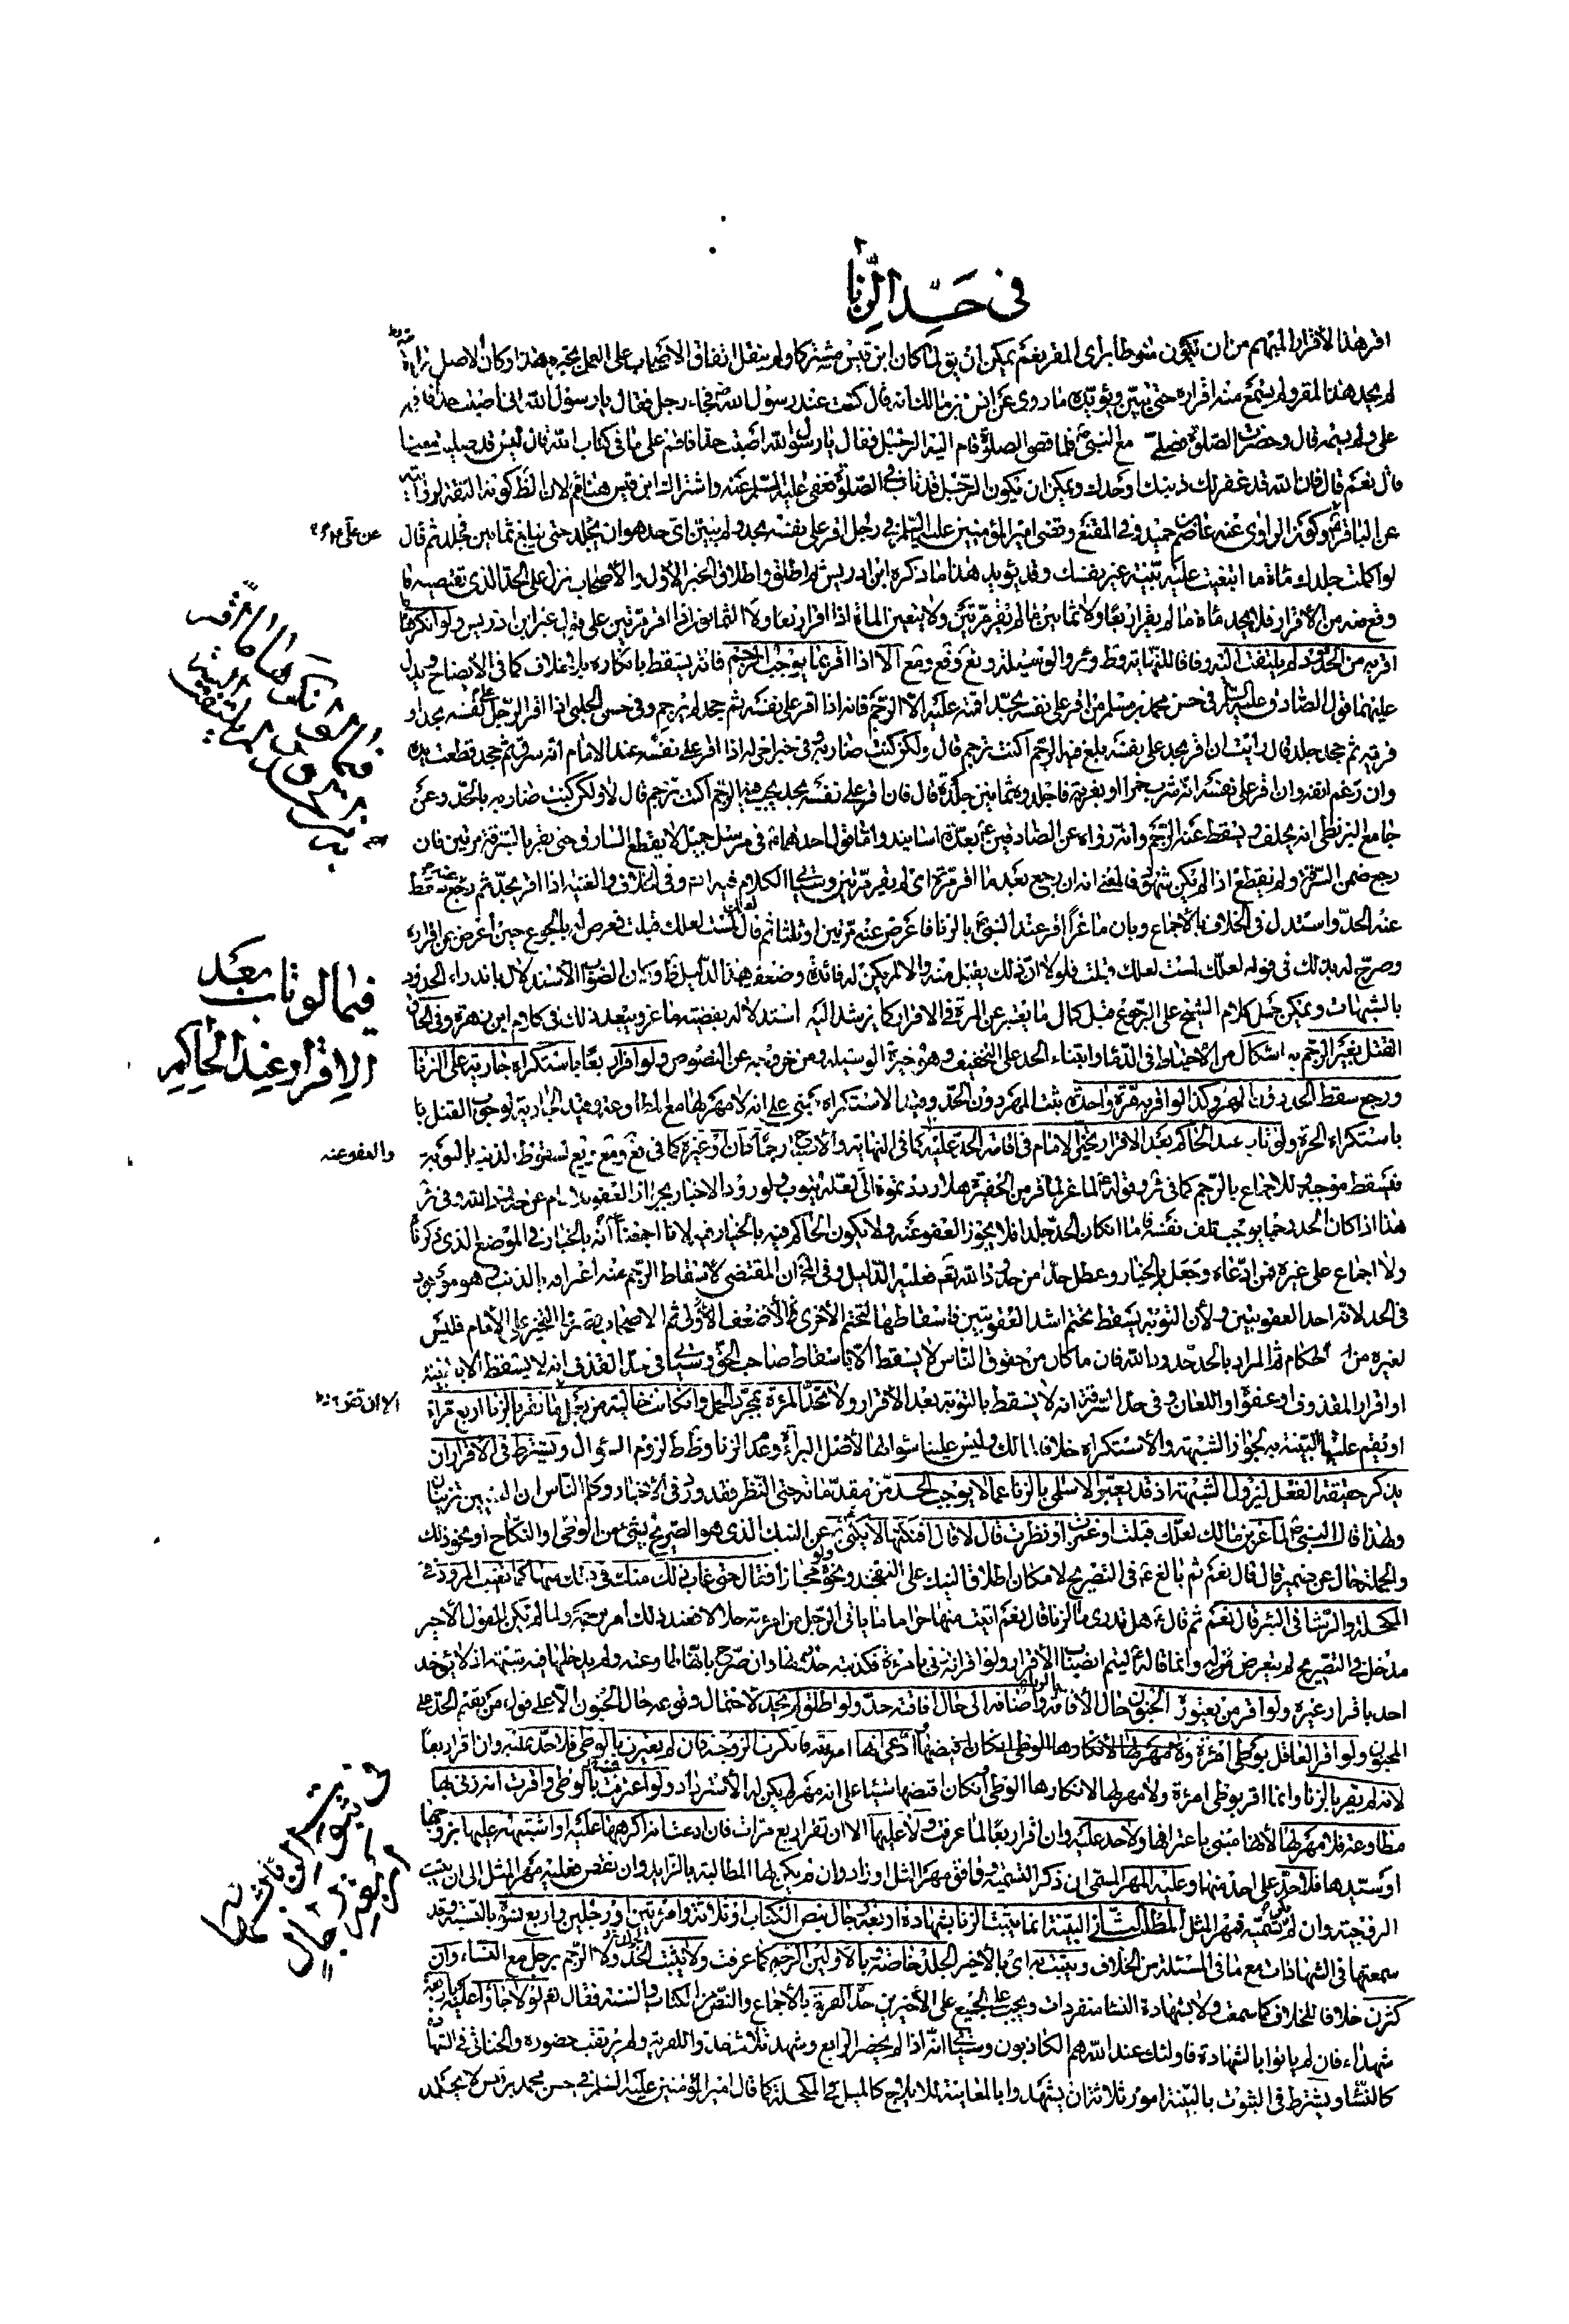 في حد الزنا
اقر هذا الاقرار المبهم من ان يكون منوطا براى المقر نعم يمكن ان يق لما كان ابن قيس مشتركا ولم ينقل اتفاق الاصحاب على العمل بخبره هذا وكان الاصل براءة
لم يحد هذا المقر ولم يسمع منه اقراره حتى يبين ويؤيده ما روى عن انس بن مالك انه قال كنت عند رسول الله ص فجاء رجل فقال يا رسول الله انى اصبت حدا فاقمه
على ولم يسمه قال وحضرت الصلوة فصلى مع النبي ص فلما قضى الصلوة قام اليه الرجل فقال يا رسول الله اصبت حدا فاقم على ما فى كتاب الله قال اليس قد صليت معنا
قال نعم قال فان الله قد غفر لك ذنبك او حدك ويمكن ان يكون الرجل قد تاب فى الصلوة فعفى عليه السلم عنه واشتراك ابن قيس هنا
عن الباقر وكون الراوى عنه عاصم بن حميد وفى المقنع وقضى امير المؤمنين عليه السلم فى رجل اقر على نفسه بحد ولم يبين اى حد هو ان يجلد حتى يبلغ ثمانين فجلد ثم قال
لو اكملت جلدك مائة ما ابتغيت عليه بينة غير نفسك وقد يؤيد هذا ما ذكره ابن ادريس ثم اطلق واطلاق الخبر الاول والاصحاب نزل على الحد الذى يقتضيه ما
وقع منه من الاقرار فلا يحد مائة ما لم يقر اربعا ولا ثمانين ما لم يقر مرتين ولا يتعين المائة اذا اقر اربعا ولا الثمانون اذا اقر مرتين على قول غير ابن ادريس ولو انكر ما
اقر به من الحدود لم يلتفت اليه وفاقا للنهاية وط وئر والوسيلة ويع وقع ومع الا اذا اقر بما يوجب الرجم فانه يسقط بانكاره بلا خلاف كما فى الايضاح ويدل
عليهما قول الصادق عليه السلم فى حسن محمد بن مسلم من اقر على نفسه بحد اقمته عليه الا الرجم فانه اذا اقر على نفسه ثم جحد لم يرجم وفى حسن الحلبى اذا اقر الرجل على نفسه بحد او
فرية ثم جحد جلد قال ارايت ان اقر بحد على نفسه بلغ فيه الرجم اكنت ترجم قال لا ولكن كنت ضاربه وفى خبر اخر له اذا اقر على نفسه عند الامام انه سرق ثم جحد قطعت يده
وان رغم انفه وان اقر على نفسه انه شرب خمرا او بفرية فاجلدوه ثمانين جلدة قال فان اقر على نفسه بحد يجب فيه الرجم اكنت ترجم قال لا ولكن كنت ضاربه بالحد وعن
جامع البزنطى انه يحلف ويسقط عنه الرجم وانه رواه عن الصادقين بعدة اسانيد واما قول احدهما فى مرسل جميل لا يقطع السارق حتى يقر بالسرقة مرتين فان
رجع ضمن السرقة ولم يقطع اذا لم يكن شهود فالمعنى انه ان رجع بعد ما اقر مرة اى لم يقر مرتين وسياتى الكلام فيه وفى الخلاف والغنية اذا اقر بحد ثم رجع عنه سقط
عنه الحد واستدل فى الخلاف بالاجماع وبان ماعزا اقر عند النبي ص بالزنا فاعرض عنه مرتين او ثلثا ثم قال لعلك لمست لعلك قبلت فعرض له بالرجوع حين اعرض عن اقراره
وصرح له بذلك فى قوله لعلك لمست لعلك قبلت فلولا ان ذلك يقبل منه والا لم يكن له فائدة وضعف هذا الدليل ظ وكان الصواب الاستدلال باندراء الحدود
بالشبهات ويمكن حمل كلام الشيخ على الرجوع قبل كمال ما يعتبر من المرة فى الاقرار كما يرشد اليه استدلاله بقضية ماعز ويبعد ذلك فى كلام ابن زهرة وفى الحاق
القتل بغير الرجم به اشكال من الاحتياط فى الدماء وابتناء الحد على التخفيف وهو خيرة الوسيلة ومن خروجه عن النصوص ولو اقر اربعا باستكراه جارية على الزنا
ورجع سقط الحد دون المهر وكذا لو اقر به مرة واحدة يثبت المهر دون الحد
باستكراه الحرة ولو تاب عند الحاكم بعد الاقرار تخير الامام فى اقامة الحد عليه كما فى النهاية رجما كان او غيره كما فى يع ومع لسقوط الذنب بالتوبة
فيسقط موجبه وللاجماع بالرجم كما فى ئر وقوله لماعز لما فر من الحفيرة هلا رددتموه الى لعله يتوب ولورود الاخبار بجواز العفو للامام عن حدود الله وفى ئر
هذا اذا كان الحد رجما يوجب تلف نفسه فاما ان كان الحد جلدا فلا يجوز العفو عنه ولا يكون الحاكم فيه بالخيار لانا اجمعنا انه بالخيار فى الموضع الذى ذكرنا
ولا اجماع على غيره فمن ادعاه وجعل بالخيار وعطل حدا من حدود الله تعم فعليه الدليل وفى المقتضى لاسقاط الرجم عنه اعترافه بالذنب وهو موجود
فى الحد لانه احد العقوبتين ولان التوبة يسقط تحتم اشد العقوبتين فاسقاطها لتحتم الاخرى الاضعف الاولى ثم الاصحاب قصروا التخيير على الامام فليس
لغيره من الحكام ثم المراد بالحد حدود الله فان ما كان من حقوق الناس لا يسقط الا باسقاط صاحب الحق وسياتى فى حد القذف انه لا يسقط الا بالبينة
او اقرار المقذوف او عفوه او اللعان وفى حد السرقة انه لا يسقط بالتوبة بعد الاقرار ولا تحد المرءة بمجرد الحمل وان كانت خالية من بعل ما لم تقر بالزنا اربع مرات
او تقم عليها البينة به لجواز الشبهة والاستكراه خلافا لمالك وليس علينا سؤالها لاصل البراءة وعدم الزنا وظ ط لزوم السؤال ويشترط فى الاقرار ان
يذكر حقيقة الفعل ليزول الشبهة اذ قد يعبر الاسلى بالزنا عما لا يوجب الحد من مقدماته حتى النظر فقد ورد فى الاخبار وكلم الناس ان العينين تزنيان
ولهذا قال النبي ص لماعز بن مالك لعلك قبلت او غمزت او نظرت قال لا قال افنكتها لا يكنى عن النيك الذى هو الصريح بشئ من الوطى او النكاح او نحو ذلك
والجملة حال عن ضمير قال قال نعم ثم بالغ فى التصريح لامكان اطلاق النيك على التفخيذ ونحوه مجازا فقال حتى غاب ذلك منك فى ذلك منها كما يغيب المرود فى
المكحلة والرشا فى البئر قال نعم ثم قال هل تدرى ما الزنا قال نعم اتيت منها حراما ما ياتى الرجل من امرءته حلالا فعند ذلك امر برجمه ولما لم يكن للقول الاخير
مدخل فى التصريح لم يتعرض له وانما قاله ليتم نصاب الاقرار ولو اقر انه زنى بامرءة فكذبته حد دونها وان صرح بانها طاوعته ولم يدخلها فيه شبهة اذ لا يؤخذ
احد باقرار غيره ولو اقر من يعتوره الجنون حال الافاقة واضافه الى حال افاقته حد ولو اطلق لم يحد لاحتمال وقوعه حال الجنون الا على قول من يقيم الحد على
المجنون ولو اقر العاقل بوطى امرءة وادعى انها امرءته فانكرت الزوجية فان لم يعترف بالوطى فلا حد عليه وان اقر اربعا
لانه لم يقر بالزنا وانما اقر بوطى امرءة ولا مهر لها لانكارها الوطى وان كان اقبضها شيئا على انه مهر لم يكن له الاسترداد ولو اعترفت بالوطى واقرت انه زنى بها
مطاوعة فلا مهر لها لانها مبغى باعترافها ولا حد عليه وان اقر اربعا لما عرفت ولا عليها الا ان تقر اربع مرات فان ادعت انه اكرهها عليه او اشتبه عليها بزوجها
او سيدها فلا حد على احد منهما وعليه المهر المسمى ان ذكر التسمية ووافق مهر المثل او زاد وان لم يكن لها المطالبة بالزايد وان نقص فعليه مهر المثل الى ان يثبت
الزوجية وان لم يسميه فمهر المثل المطلب الثانى البينة انما يثبت الزنا بشهادة اربعة رجال بنص الكتاب او ثلاثة وامرءتين او رجلين واربع نسوة بالسنة وقد
سمعتها فى الشهادات مع ما فى المسئلة من الخلاف ويثبت به اى بالاخير الجلد خاصة وبالاولين الرجم كما عرفت ولا يثبت الحد ولا الرجم برجل مع النساء وان
كثرن خلافا للخلاف كما سمعت ولا بشهادة النسا منفردات ويجب على الجميع على الاخيرين حد الفرية بالاجماع والنص من الكتاب والسنة فقال تعم لولا جاؤا عليه باربعة
شهداء فان لم ياتوا بالشهداء فاولئك عند الله هم الكاذبون وسياتى انه اذا لم يحضر الرابع وشهد ثلاثة حدوا للفرية ولم يرتقب حضوره والخناثى فى الشهادة
كالنسا ويشترط فى الثبوت بالبينة امور ثلاثة ان يشهدوا بالمعاينة للايلاج كالميل فى المكحلة كما قال امير المؤمنين عليه السلم فى حسن محمد بن قيس لا يجلد
عن على ع
فيما لو تاب بعد
الاقرار عند الحاكم
والعفو عنه
فى ثبوت الزنا بشهادة
اربعة رجال